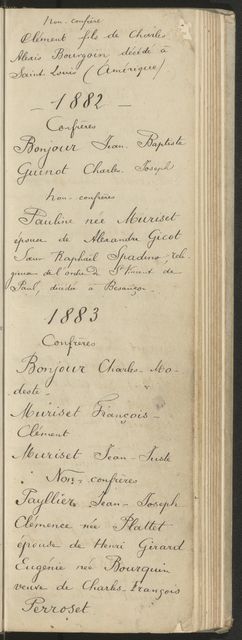 Non-confrère
Clément fils de Charles
Alexis Bourgoin décédé à
Saint Louis (Amérique)
- 1882 -
Confrères
Bonjour Jean Baptiste
Guinot Charles Joseph
Non-confrères
Pauline née Muriset
épouse de Alexandre Gicot
Sœur Raphaël Spadino reli-
gieuse de l'ordre de St Vincent de
Paul, décédée à Besançon
1883
Confrères
Bonjour Charles-Mo-
deste
Muriset François-
Clément
Muriset Jean-Juste
Non-confrères
Payllier Jean-Joseph
Clémence née Plattet
épouse de Henri Girard
Eugénie née Bourquin
veuve de Charles-François
Perroset